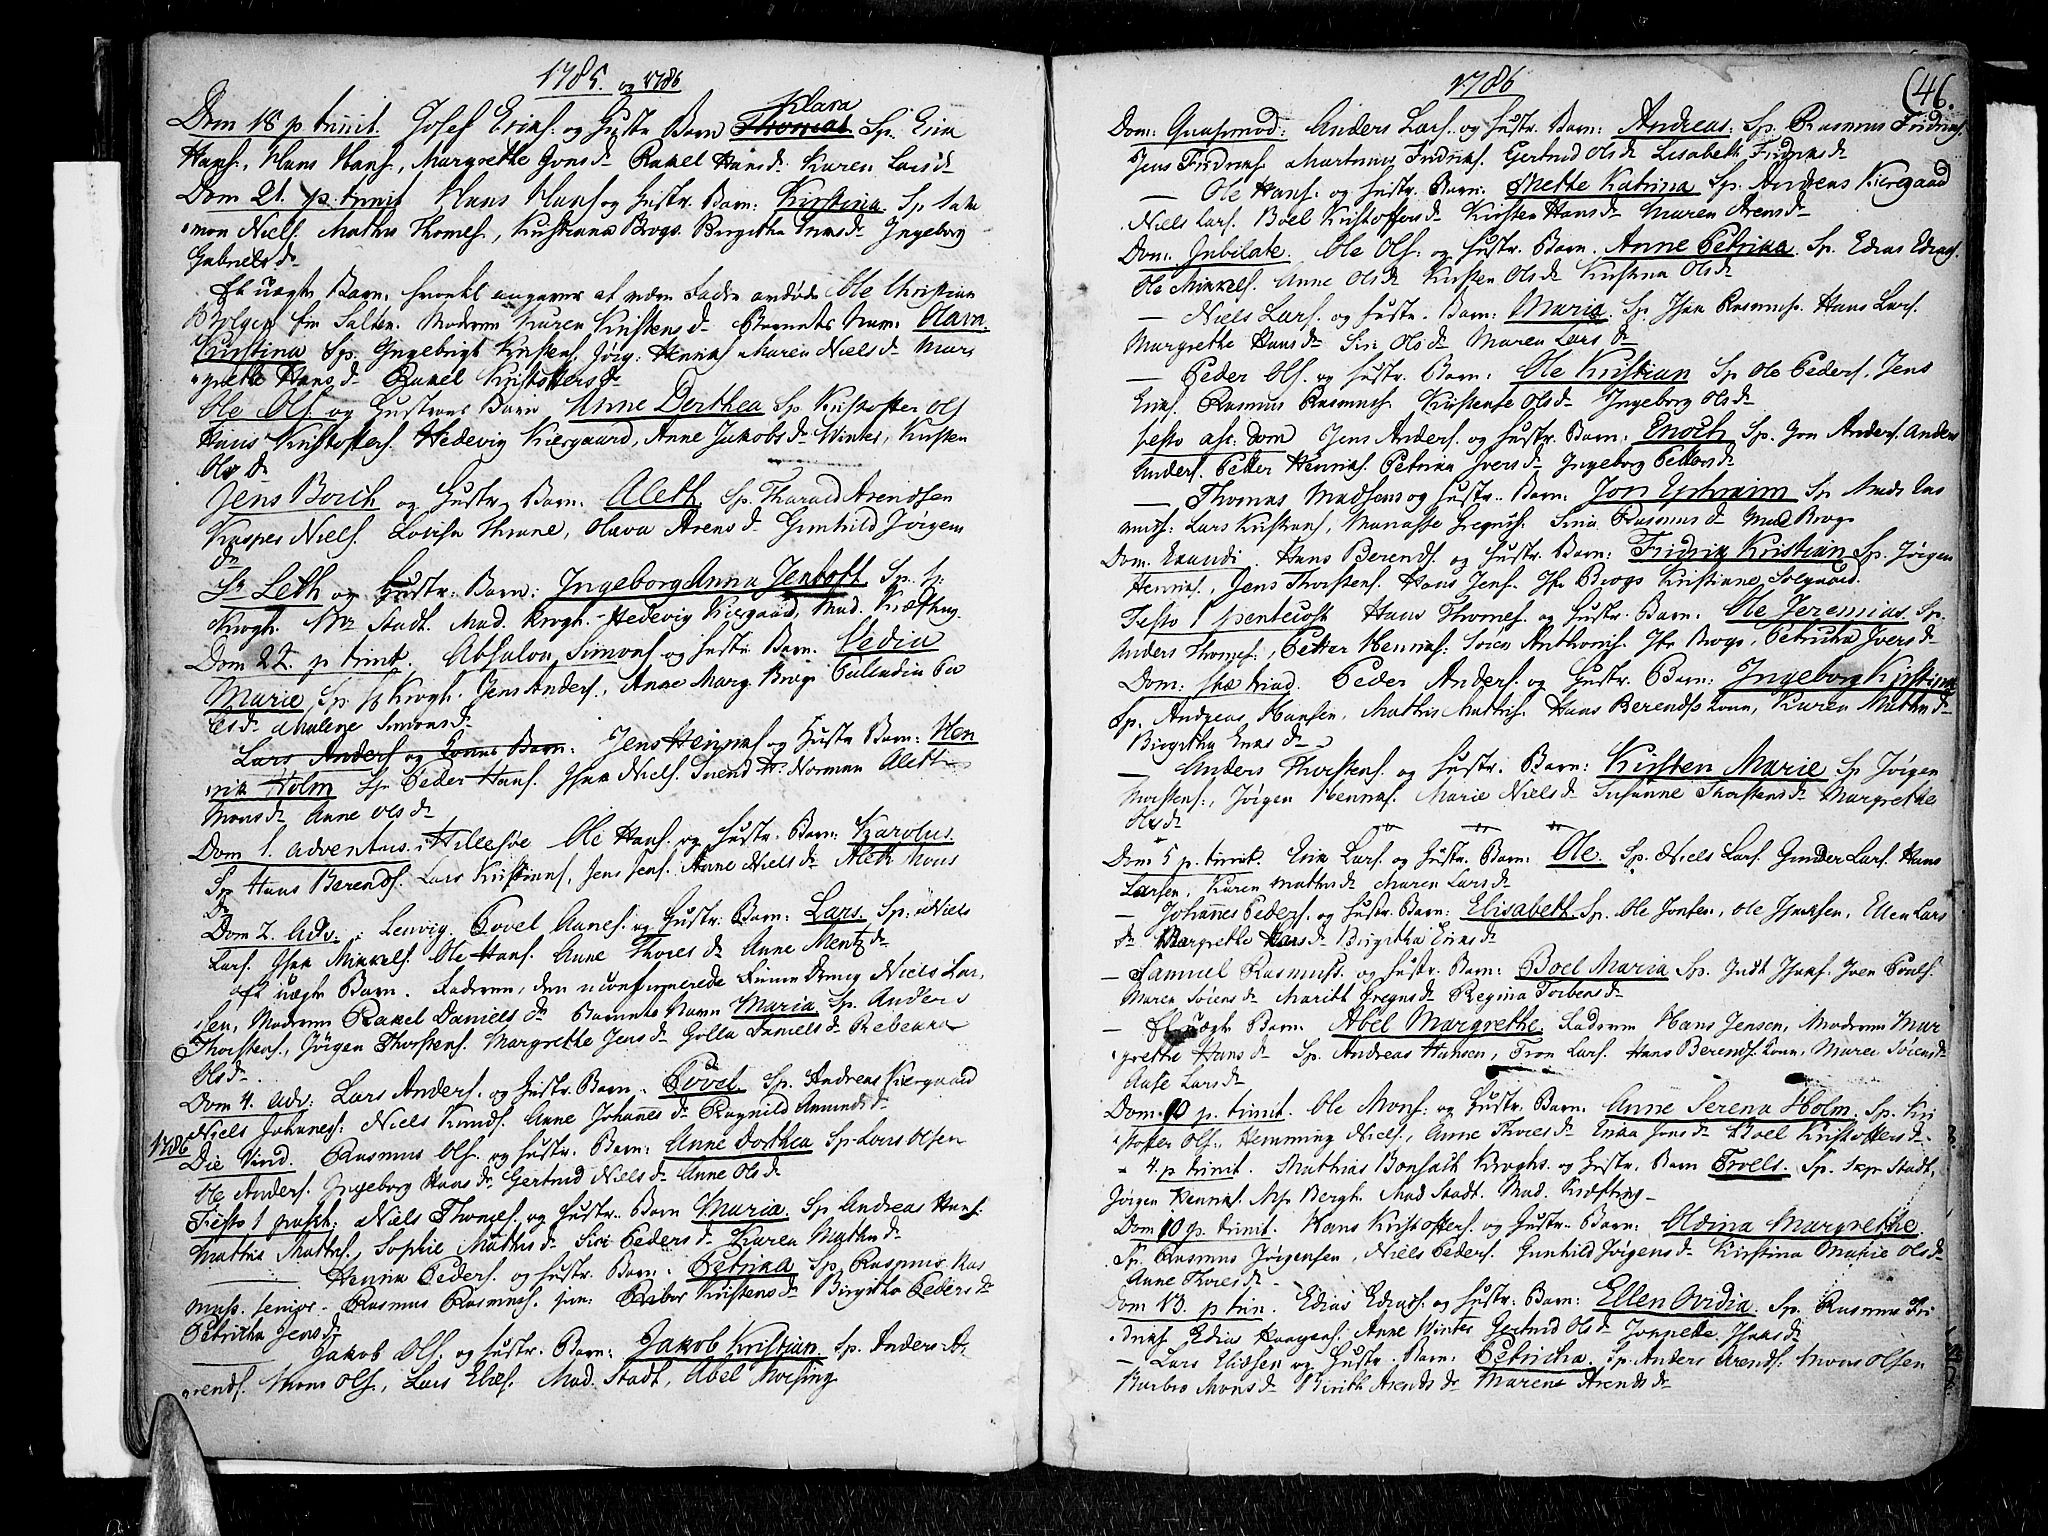 1785. og 1786
Klara
Dom 18 p. trinit. Josef Eriks. og Hustr. Barn Thomas Sp. Erik
Hans. Hans Hans. Margrethe Jons d. Rakel Hans d. Karen Lars d.
Dom 21. p. trinit Hans Hans og Hustr. Barn: Kirstina. Sp
Niels. Mathis Thomes., Kristiana Brogs. Birgitha Ingeborg
Gabriels d.
Et uægte Barn. angiver at være Fader Ole Christian
Salten. Moderen Karen Kristens d. Barnets Navn: Olava
Kirstina Sp. Ingebrigt Kristens. Jörg: Henriks. Maren Niels d. Mar
grethe Hans d. Rakel Kristoffers d.
Ole Ols. og Hustrues Barn Anne Dorthea Sp. Kristoffer Ols
Hans Kristoffers. Hedevig Kiergaard, Anne Jakobs d. Winter, Kirsten
Ols d.
Jens Borch og Hustr. Barn: Aleth Sp. Tharald Arendsen
Kasper Niels. Lovisa Thrane, Olava Arens d. Gunhild Jörgens
d.
Sr. Leth og Hustr: Barn: Ingeborg Anna Jentoft. Sp. Hr
Krogh. Mr Stadt. Mad. Krogh. Hedevig Kiergaard, Mad. Kræfting
Dom 22. p. trinit. Absalon Simons og Hustr. Barn. Vedia
Marie Sp. Hr Krogh. Jens Anders., Anne Marg. Brogs Palladia Pe
ders d. Malene Simons d.
Lars Anders og Kones Barn. Jens Henriks og Hustr. Barn: Hen
rik Holm Sp. Peder Hans. Isak Niels. Svend Norman Aleth
Mons d. Anne Ols d.
Dom 1. Adventus. Hillesöe Ole Hans. og Hustr. Barn: Karolus.
Sp Hans Berends. Lars Kristians., Jens Jens. Anne Niels d. Aleth Mons
d.
Dom 2. Adv. Lenvig. Povel Aunes. og Hustr. Barn: Lars. Sp: Niels
Lars. Isak Mikkels. Ole Hans. Anne Thores d. Anne Mentz d.
Et uægte Barn. Faderen, den uconfirmerede Niels Lar
sen, Moderen Rakel Daniels d. Barnets Navn Maria Sp. Anders
Thorstens., Jörgen Thorstens. Margrethe Jens d. Golla Daniels d. Rebekka
Ols d.
Dom 4. Adv: Lars Anders. og Hustr. Barn: Povel. Sp. Andreas Kiergaard
Niels Johannes: Niels Knuds. Anne Johannes d. Ragnild Amunds d.
1786 Die Vind. Rasmus Ols. og Hustr. Barn: Anne Dorthea Sp. Lars Olsen
Ole Anders. Ingeborg Hans d. Gertrud Niels d. Anne Ols d.
Festo 1 pasch: Niels Thomes. og Hustr. Barn Maria. Sp. Andreas Hans.
Mathis Mathis., Sophie Mathis d. Siri Peders d. Karen Mathis d.
Henrik Peders. og Hustr. Barn. Petrika Sp. Rasmus Ras
muss. Senior. Rasmus Rasmuss. jun: Kristens d. Birgitha Peders d.
Petricha Jens d.
Jakob Ols. og Hustr. Barn: Jakob Kristian. Sp. Anders A
rends. Mons Ols., Lars Elias. Mad. Stadt, Abel Morsing
1786
(46.
Dom: Quasimod: Anders Lars. og Hustr. Barn: Andreas: Sp. Rasmus Fridriks.
Jens Fridriks. Martinus Fridriks. Gertrud Ols d. Lisabeth Fridriks d.
— Ole Hans: og Hustr. Barn. Mette Katrina Sp. Andreas Kiergaard
Niels Lars. Boel Kristoffers d. Kirsten Hans d. Maren Arens d.
Dom: Jubilate. Ole Ols: og Hustr. Barn. Anne Petrika. Sp. Edias Edias.
Ole Mikkels. Anne Ols d. Kirsten Ols d. Kirstina Ols d.
— Niels Lars. og Hustr. Barn: Maria. Sp. Isak Rasmuss. Hans Lars.
Margrethe Hans d. Siri Ols d. Maren Lars d.
— Peder Ols. og Hustr. Barn: Ole Kristian Sp Ole Peders. Jens
Eriks. Rasmus Rasmuss. Kirstense Ols d. Ingeborg Ols d.
Festo asc: dom Jens Anders. og Hustr. Barn: Enoch Sp. Jon Anders. Anders
Anders. Petter Henriks. Petrika Ivers d. Ingeborg Petters d.
— Thomas Madsens og Hustr. Barn: Jon Ephraim Sp Mads Ras
muss: Lars Kristians, Manasse Gregus: Siria Rasmus d. Mad Brogs
Dom. Exaudi. Hans Berends. og Hustr. Barn: Fridrik Kristian Sp. Jörgen
Henriks., Jens Thorstens. Hans Jens. Jfr Brogs Kristiane Solgaard.
Festo 1 pentecost Hans Thomes. og Hustr. Barn: Ole Jeremias. Sp.
Anders Thomes., Petter Henriks: Sören Anthonis. Jfr Brogs, Petricha Ivers d.
Dom: Stæ triad. Peder Anders. og Hustr. Barn: Ingeborg Kirstina
Sp. Andreas Hansen, Mathis Mathis. Hans Berends Kone, Karen Mathis d.
Birgitha Eriks d.
— Anders Thorstens. og Hustr. Barn: Kirsten Marie Sp Jörgen
Morstens:, Jörgen Henriks. Marie Niels d. Susanne Thorstens d. Margrethe
Ols d.
Dom 5 p. trinit. Erik Lars. og Hustr. Barn: Ole. Sp. Niels Lars. Gunder Lars. Hans
Larsen, Karen Mathis d. Maren Lars d.
— Johannes Peders. og Hustr. Barn: Elisabeth Sp. Ole Jonsen, Ole Isaksen, Ellen Lars
d. Margrethe Hans d. Birgitha Eriks d.
— Samuel Rasmuss. og Hustr. Barn: Boel Maria Sp. Just Isaks: Iver Pouls.
Maren Sörens d. Maritt Gregus d. Regina Torbens d.
— Et uægte Barn: Abel Margrethe. Faderen Hans Jensen, Moderen Mar
grethe Hans d. Sp. Andreas Hansen, Tron Lars. Hans Berends. Kone, Maren Sörens d.
Aase Lars d.
Dom. 10 p. trinit. Ole Mons: og Hustr. Barn: Anne Serena Holm. Sp. Kri
stoffer Ols., Hemming Niels., Anne Thores d. Erika Jons d. Boel Kristoffers d.
— 4. p trinit. Mathias Bonsach Kroghs. og Hustr. Barn Troels. Sp. Skpr Stadt,
Jörgen Henriks. Mr. Bergh. Mad Stadt. Mad. Kræfting
Dom 10 p. trinit. Hans Kristoffers. og Hustr. Barn: Aldina Margrethe.
Sp. Rasmus Jörgensen, Niels Peders. Gunhild Jörgens d. Kirstina Marie Ols d.
Anne Thores d.
Dom 13. p trin. Edias Edias. og Hustr. Barn: Ellen Ovidia. Sp. Rasmus Fri
driks. Edias Haagens. Anne Winter Gertrud Ols d. Joppette Isaks d.
— Lars Eliesen og Hustr. Barn: Petricha. Sp. Anders Arends. Mons Olsen
Barbro Mons d. Birith Arends d. Marene Arends d.